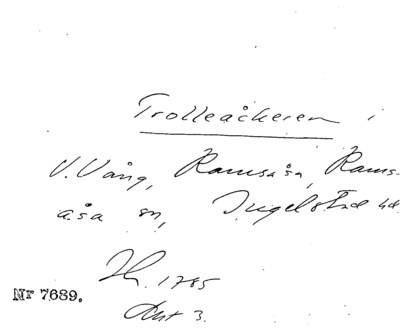 Trolleåkeren i
V. Vång, Ramsåsa, Rams-
åsa sn, Ingelstad hd.
1785
Nr 7689.
Akt 3.